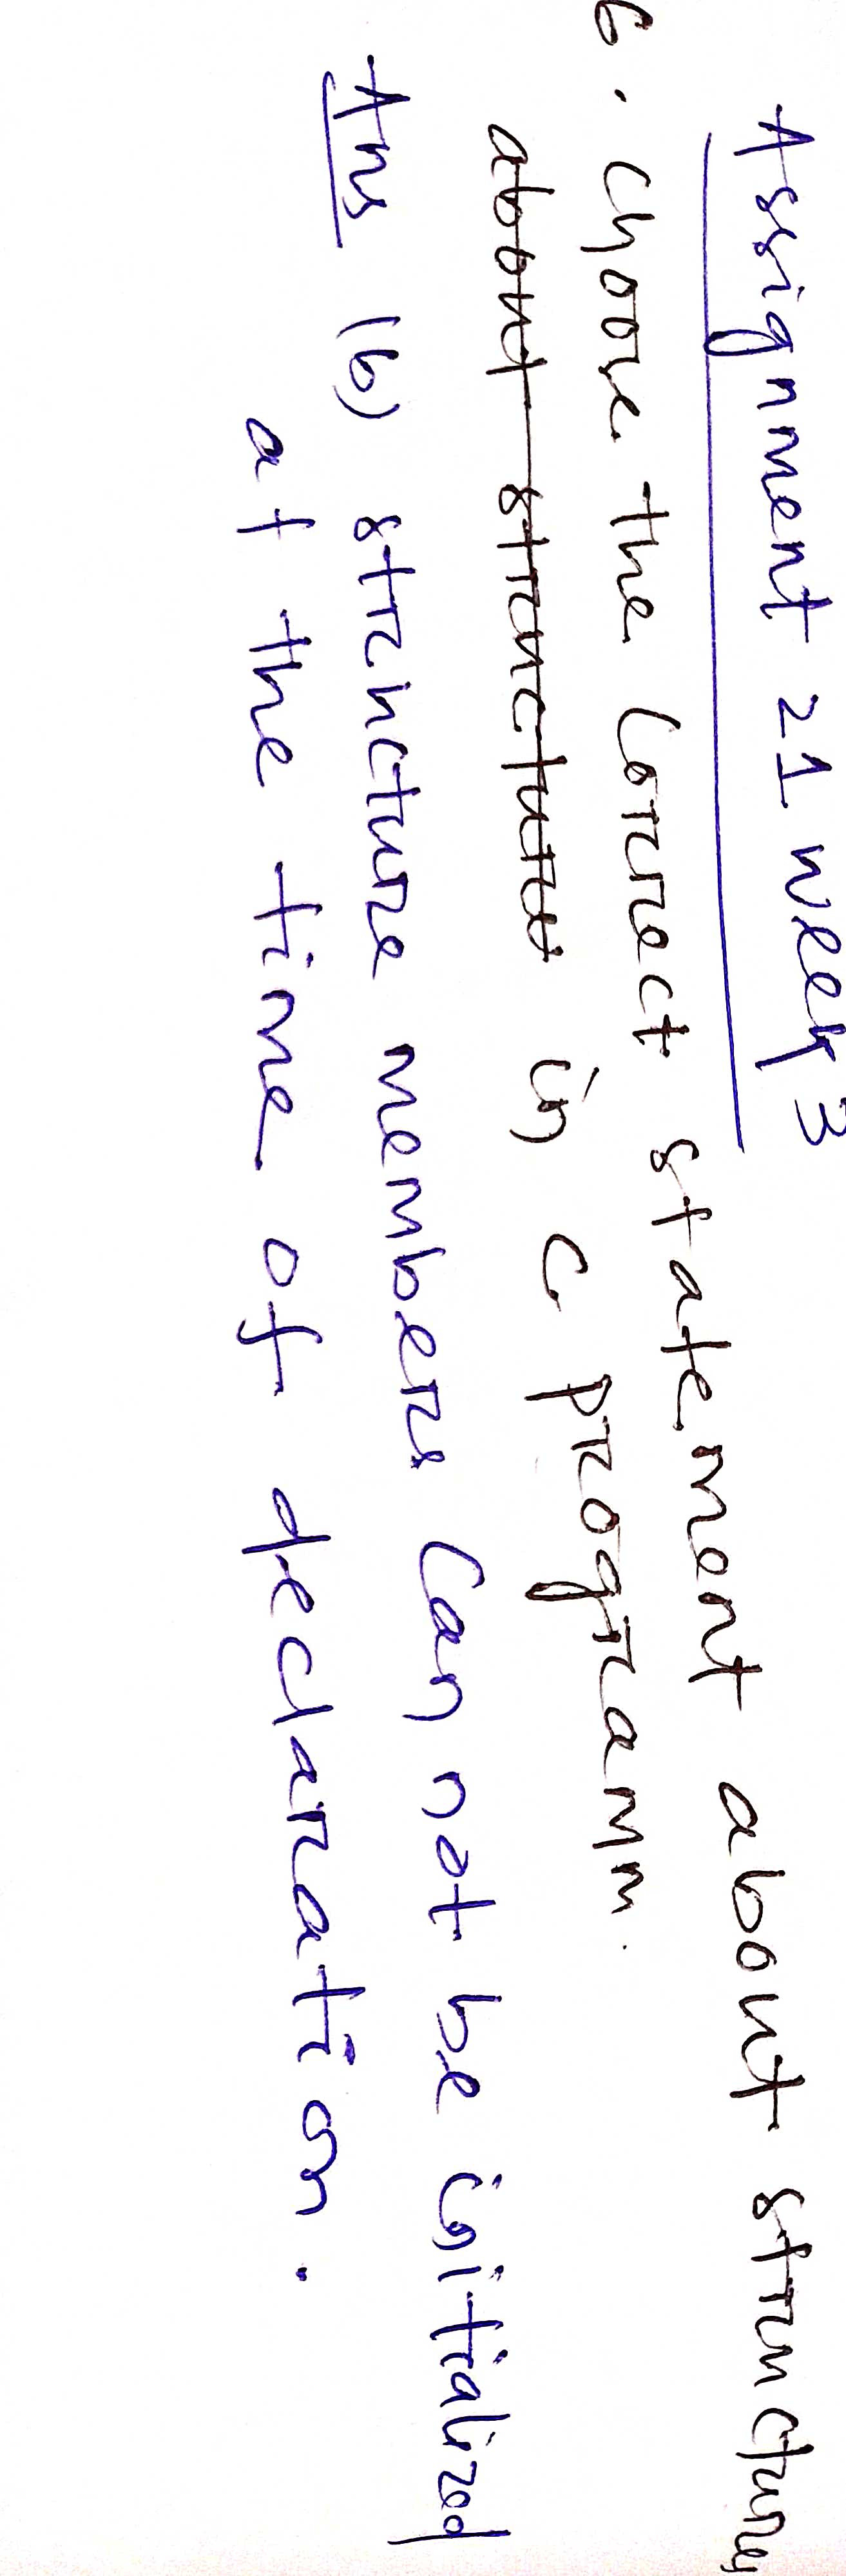 Assignment 21 week 3
6. Choose the correct statement about structures
about structure in C programm.
Ans (b) structure members can not be initialized
at the time of declaration.